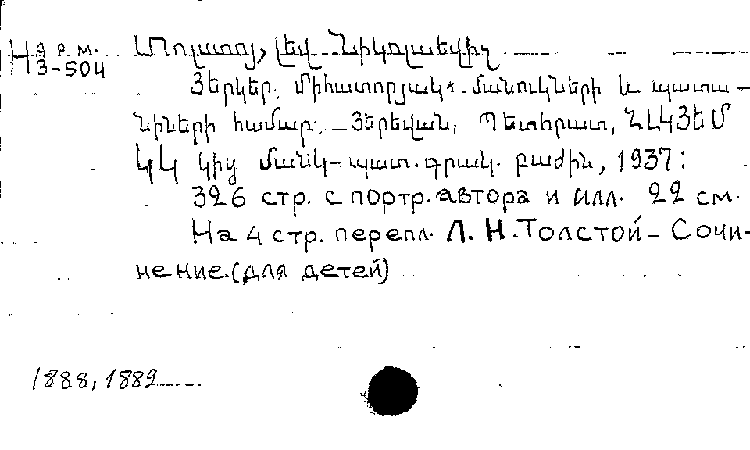 Арм.
H 3-504
Տոլստոյ, Լեվ Նիկոլաևիչ
Յերկեր. միհատորյակ. մանուկների և պատա-
նիների համար. Յերեվան, Պետհրատ, ՀԼԿՅԵՄ
ԿԿ կից մանկ-պատ. գրակ. բաժին, 1937:
326 стр. с портр. автора и илл. 22 см.
На 4 стр. перепл. Л. Н. Толстой - Сочи-
нение. (для детей)
1888, 1889